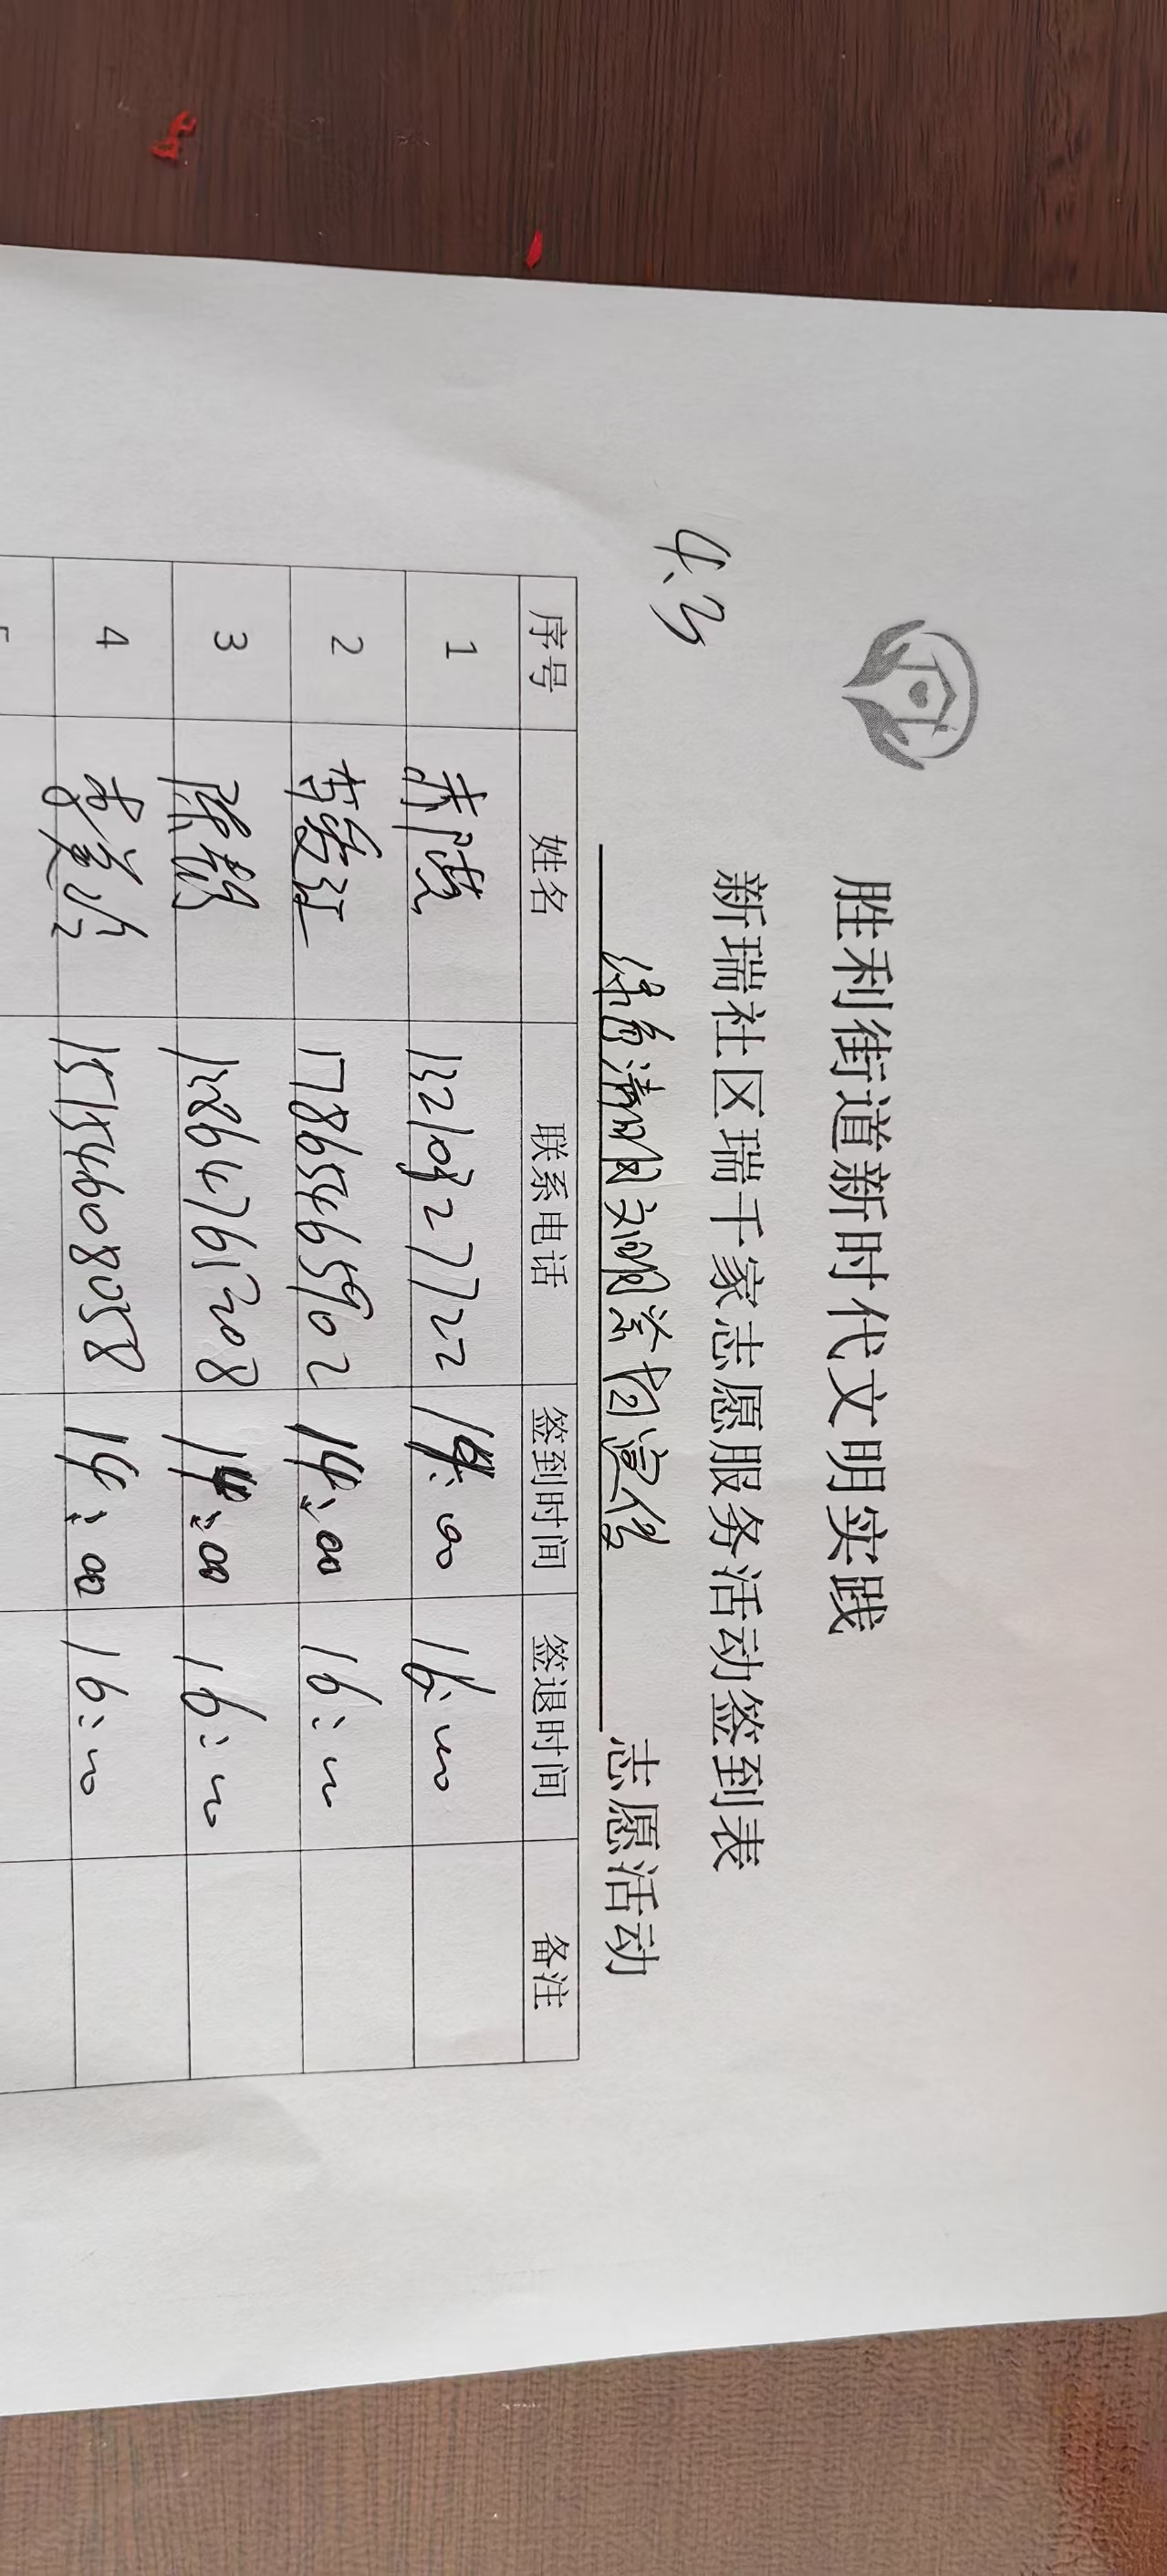 胜利街道新时代文明实践
新瑞社区瑞千家志愿服务活动签到表
4.3
绿色清明文明祭扫宣传 志愿活动
序号 姓名 联系电话 签到时间 签退时间 备注
1 13210827722 14:00 16:00
2 17865465902 14:00 16:00
3 陈颖 14:00 16:00
4 15154608058 14:00 16:00